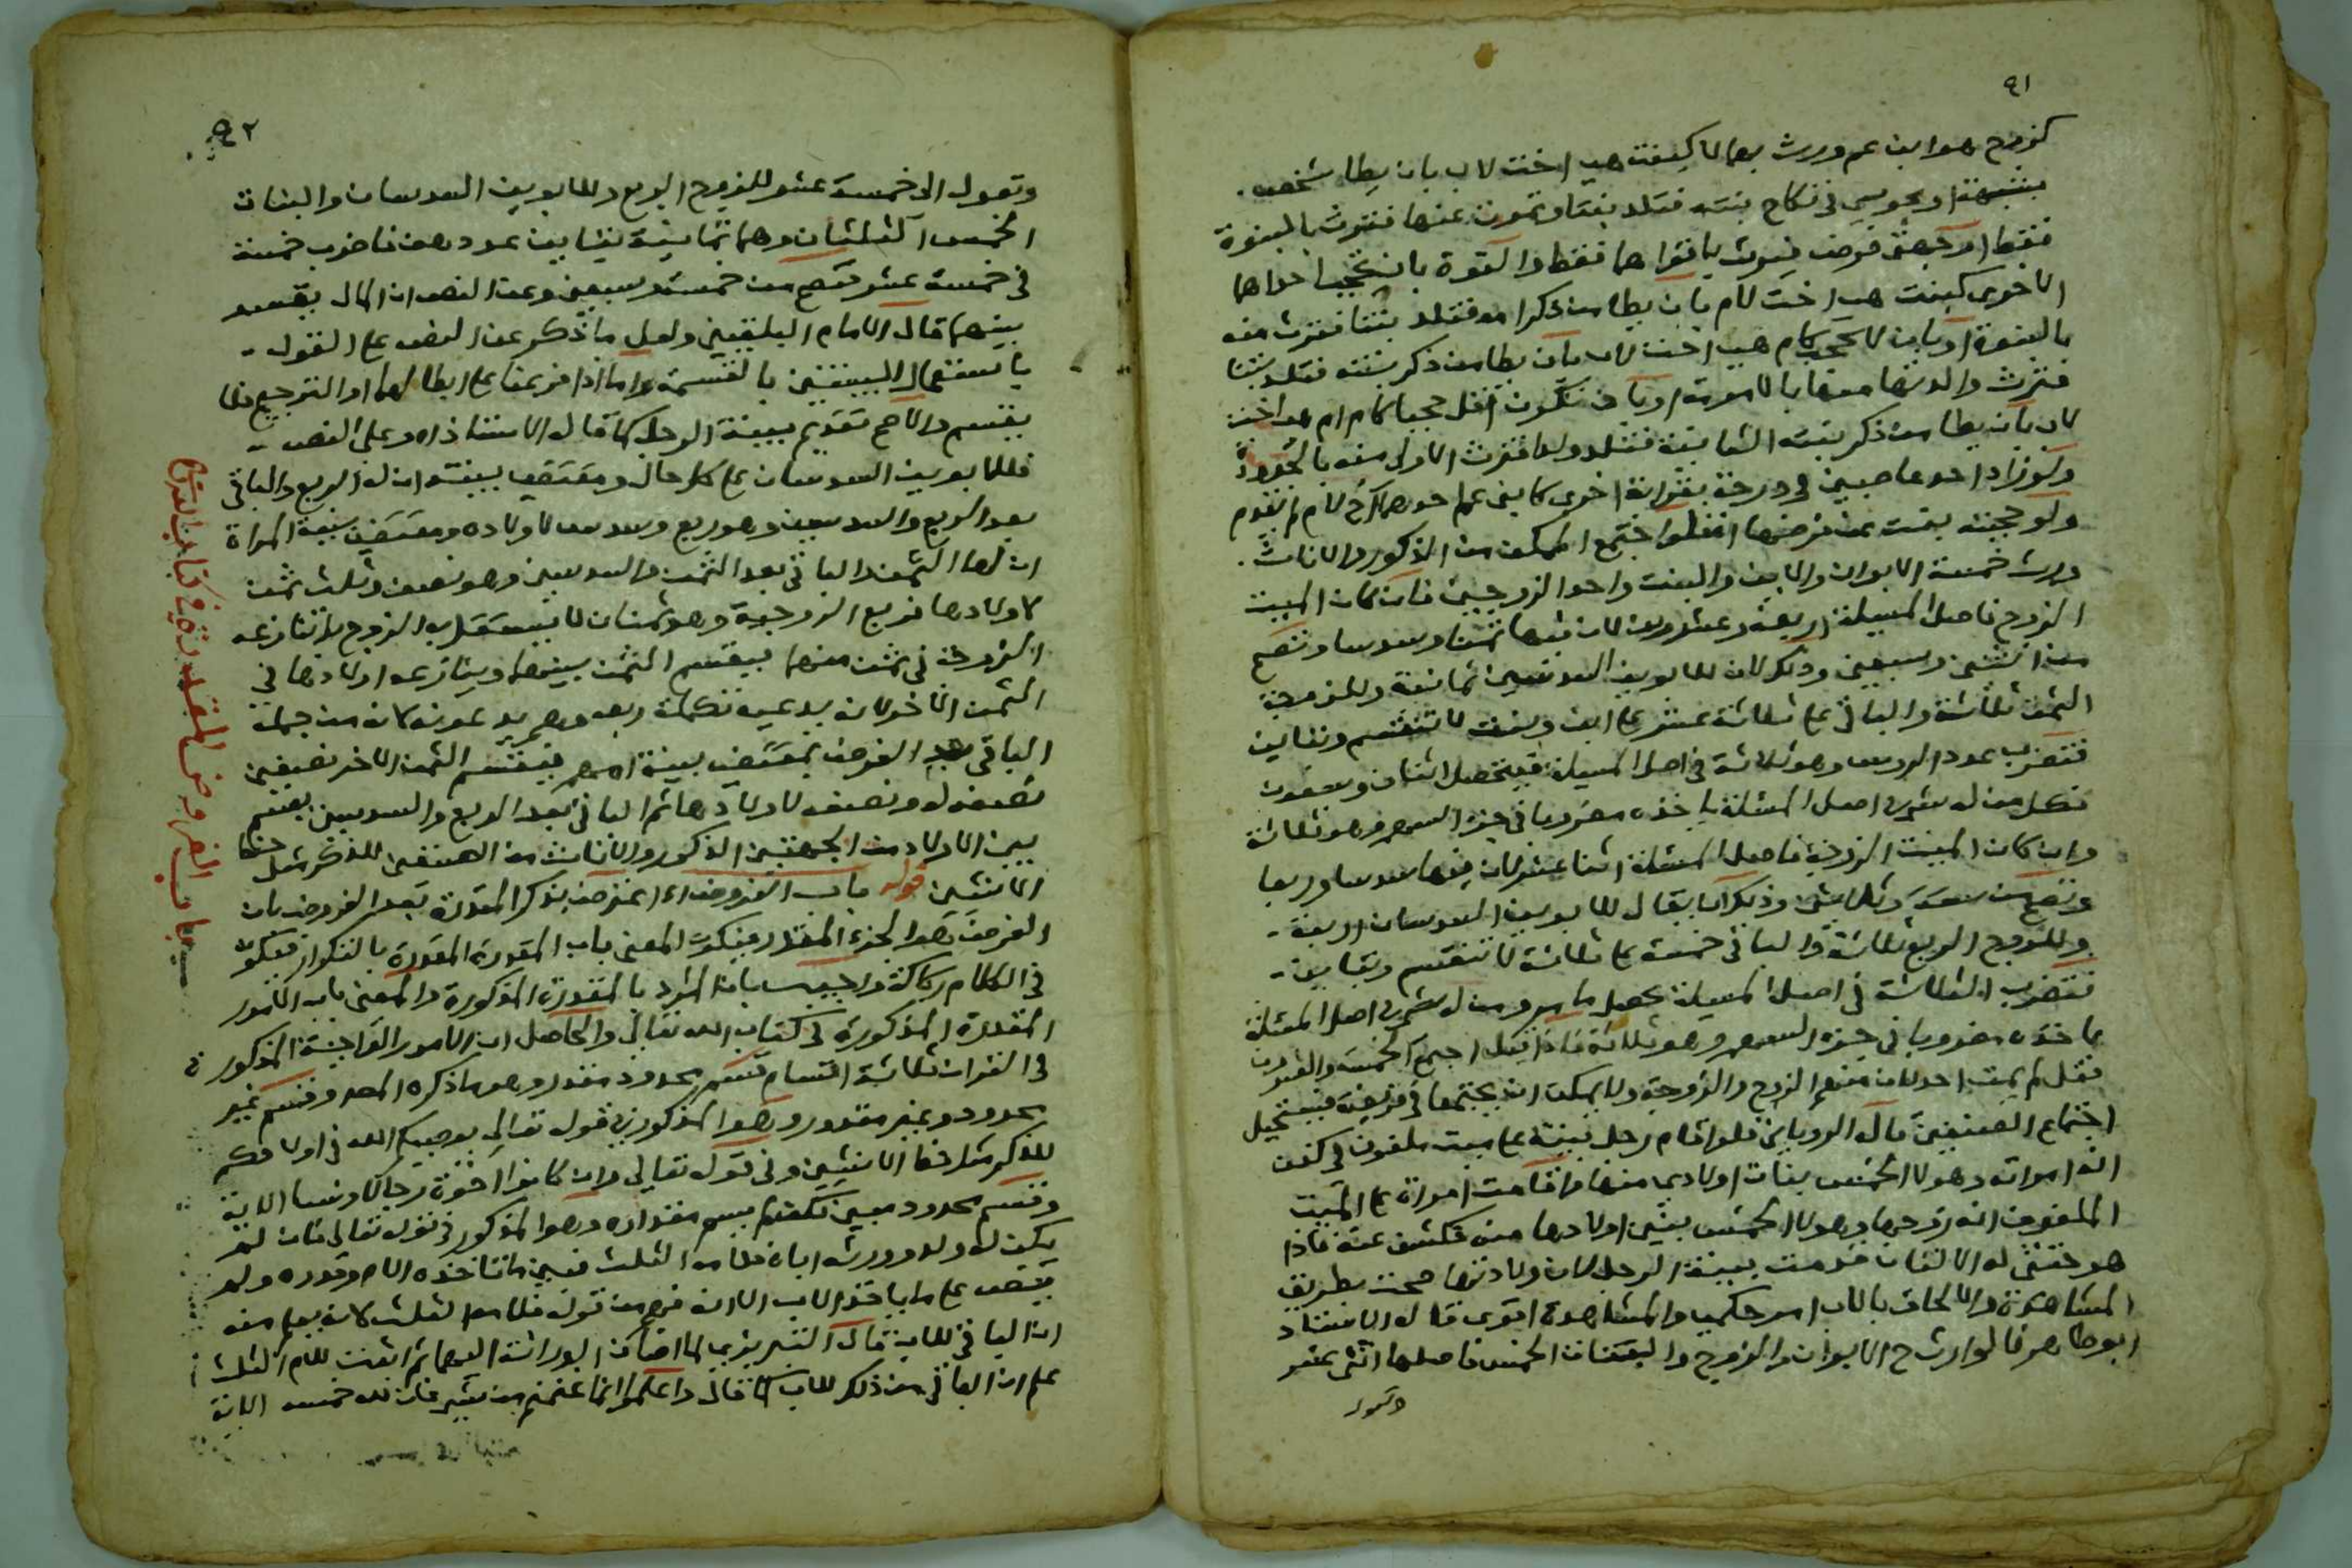 ٩١
كزوج هو ابن عم ورث بهما لا كبنت هي اخت لاب بان يطا شخص
بشبهة او مجوسي في نكاح بنته فتلد بنتا وتموت عنها فترث بالبنوة
فقط او بجهتي فرض فيرث باقواهما فقط والقوة بان تحجب احداهما
الاخرى كبنت هي اخت لام بان يطا من ذكر امه فتلد بنتا فترث منه
بالبنوة او بان لا تحجب كام هي اخت لاب بان يطا من ذكر بنته فتلد بنتا
فترث والدتها منها بالامومة او بان تكون اقل حجبا كام ام هي اخت
لاب بان يطا من ذكر بنته الثانية فتلد ولدا فترث الاولى منه بالجدودة
ولو زاد احد عاصبين في درجة بقرابة اخرى كابني عم احدهما اخ لام لم يقدم
ولو حجبته بنت عن فرضها لو اجتمع الممكن من الذكور والاناث
ورث خمسة الابوان والابن والبنت واحد الزوجين فان كان الميت
الزوج فاصل المسيلة اربعة وعشرون لان فيها ثمنا وسدسا وتصح
من اثنين وسبعين وذلك لان للابوين السدسين ثمانية وللزوجة
الثمن ثلاثة والباقي على ثلاثة عشر على ابن وبنت لا تنقسم وتباين
فتضرب عدد الروس وهو ثلاثة في اصل المسيلة فيتحصل اثنان وسبعون
فكل من له شي من اصل المسئلة ياخذه مضروبا في جزء السهم وهو ثلاثة
وان كان الميت الزوجة فاصل المسئلة اثنا عشر لان فيها سدسا وربعا
وتصح من ستة وثلاثين وذلك ان يقال للابوين السدسان اربعة
وللزوج الربع ثلاثة والباقي خمسة على ثلاثة لا تنقسم وتباين
فتضرب الثلاثة في اصل المسيلة يحصل ما مر ومن له شي من اصل المسئلة
ياخذه مضروبا في جزء السهم وهو ثلاثة فاذا قيل اجمع الخمسة والعشرين
فقل لم يمت احد لان منهم الزوج والزوجة ولا يمكن ان يجتمعا في فريضة فيستحيل
اجتماع الصنفين قال الروياني فلو اقام رجل بينة على ميت ملفوف في كفن
انه امراته وهولا الخمس بنات اولادي منها واقامت امراة على الميت
الملفوف انه زوجها وهولا الخمس بنين اولادها منه فكشف عنه فاذا
هو خنثى له الالتان قدمت بينة الرجل لان ولادتها صحت بطريق
المشاهدة والالحاق بالاب امر حكمي والمشاهدة اقوى قاله الاستاذ
ابو طاهر فالوارث ح الابوان والزوج والبنات الخمس فاصلها اثني عشر
وتعول
٩٢
وتعول الى خمسة عشر للزوج الربع وللابوين السدسان والبنات
الخمس الثلثان وهما ثمانية تباين عددهن فاضرب خمسة
في خمسة عشر تصح من خمسة وسبعين وعن النص ان المال يقسم
بينهما قال الامام البلقيني ولعل ما ذكر عن النص على القول
باستعمال البينتين بالقسمة واما اذا فرعنا على ابطالهما او الترجيح فلا
يقسم والاصح تقديم بينة الرجل كما قال الاستاذ اه وعلى النص
فللابوين السدسان على كل حال ومقتضى بينته ان له الربع والباقي
بعد الربع والسدسين وهو ربع وسدس لاولاده ومقتضى بينة المراة
ان لها الثمن والباقي بعد الثمن والسدسين وهو نصف وثلث ثمن
لاولادها فربع الزوجية وهو ثمنان لا يستقل به الزوج بل تنازعه
الزوجة في ثمن منهما فيقسم الثمن بينهما وينازعه اولادها في
الثمن الاخر لانه يدعيه تكملة ربعه وهم يدعون انه من جملة
الباقي بعد الفرض بمقتضى بينة امهم فيقسم الثمن الاخر نصفين
نصف له ونصف لاولادها ثم الباقي بعد الربع والسدسين يقسم
بين الاولاد من الجهتين الذكور والاناث من الصنفين للذكر مثل حظ
الانثيين قوله باب الفروض اء اعترض بذكر المقدرة بعد الفروض بان
الفرض هو الجزء المقدر فيكون المعنى باب المقدرة المقدرة بالتكرار فيكون
في الكلام ركاكة واجيب بان المراد بالمقدرة المذكورة والمعنى باب الامور
المقدرة المذكورة في كتاب الله تعالى والحاصل ان الامور الواجبة المذكورة
في القران ثلاثة اقسام قسم محدود مقدر وهو ما ذكره المص وقسم غير
محدود وغير مقدر وهو المذكور في قوله تعالى يوصيكم الله في اولادكم
للذكر مثل حظ الانثيين وفي قوله تعالى وان كانوا اخوة رجالا ونسا الاية
وقسم محدود مبين لكنه لم يسم مقداره وهو المذكور في قوله تعالى فان لم
يكن له ولد وورثه ابواه فلامه الثلث فبين ما تاخذه الام وقدره ولم
ينص على ما ياخذه الاب الا انه فهم من قوله فلامه الثلث لانه يعلم منه
ان الباقي للاب قال التبريزي لما اضاف الوراثة اليهما ثم اثبت للام الثلث
علم ان الباقي من ذلك للاب كما قال واعلموا انما غنمتم من شي فان لله خمسه الاية
باب الفروض المقدرة في كتاب الله تعالى